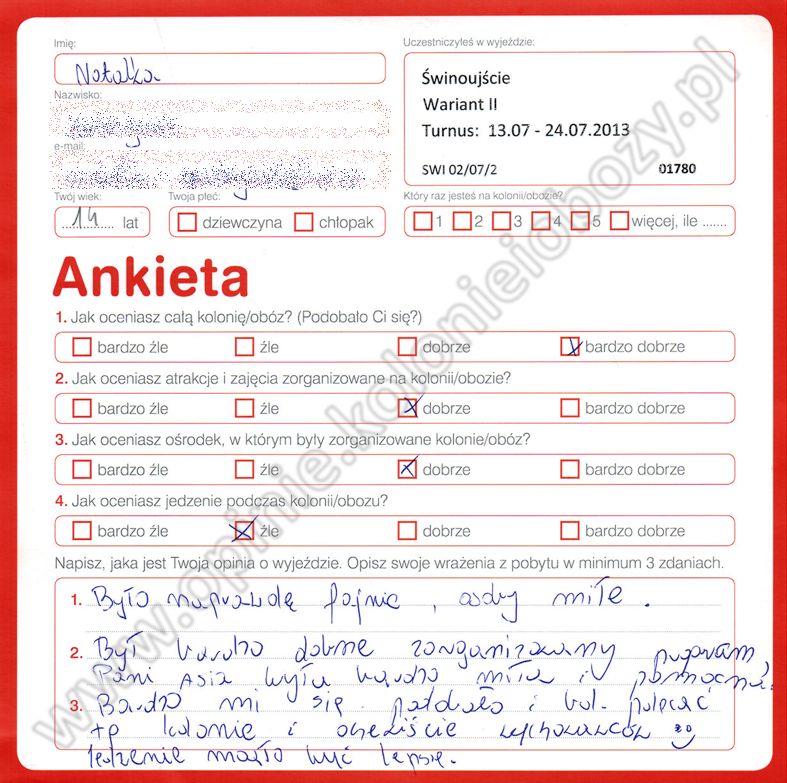 Imię:
Natalka
Nazwisko:
e-mail:
Twój wiek:
14 lat
Twoja płeć:
dziewczyna chłopak
Uczestniczyłeś w wyjeździe:
Świnoujście
Wariant II
Turnus: 13.07 - 24.07.2013
SWI 02/07/2 01780
Który raz jesteś na kolonii/obozie?
1 2 3 4 5 więcej, ile .......
Ankieta
1. Jak oceniasz całą kolonię/obóz? (Podobało Ci się?)
bardzo źle źle dobrze bardzo dobrze
2. Jak oceniasz atrakcje i zajęcia zorganizowane na kolonii/obozie?
bardzo źle źle dobrze bardzo dobrze
3. Jak oceniasz ośrodek, w którym były zorganizowane kolonie/obóz?
bardzo źle źle dobrze bardzo dobrze
4. Jak oceniasz jedzenie podczas kolonii/obozu?
bardzo źle źle dobrze bardzo dobrze
Napisz, jaka jest Twoja opinia o wyjeździe. Opisz swoje wrażenia z pobytu w minimum 3 zdaniach.
1. Było naprawdę fajnie, miłe.
2. Był bardzo dobrze zorganizowany program,
Pani Asia była bardzo miła i pomocna.
3. Bardzo mi się podobało i polecać
tę kolonie i oczywiście wychowawców
jedzenie mogło być lepsze.
www.opinie.kolonieiobozy.pl